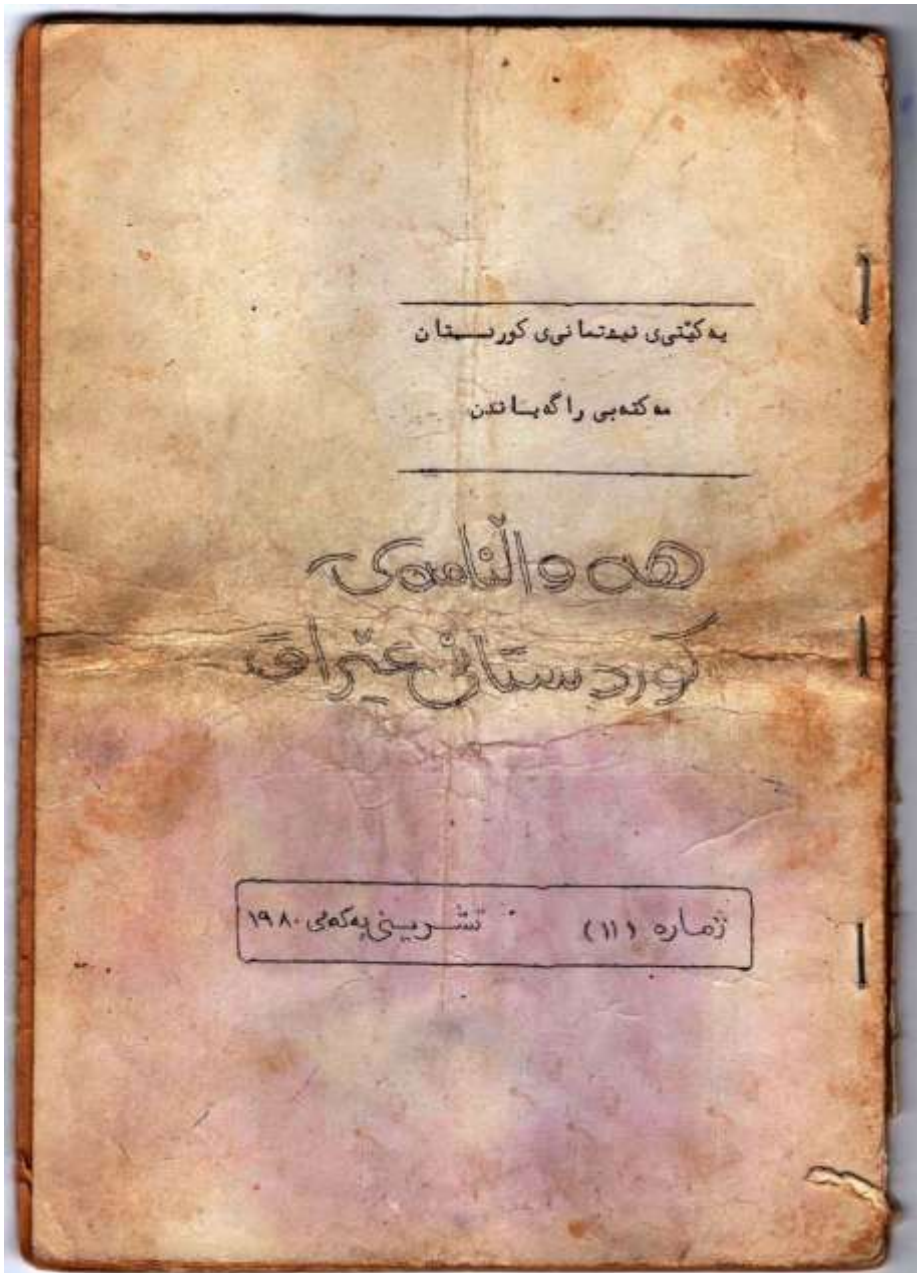 یەکێتی‌ی نیەتمانی‌ی کورستان
مەکتەبی راگەیاندن
هەواڵنامەی
کوردستانی عێراق
ژمارە (١١) تشرینی یەکەمی ١٩٨٠